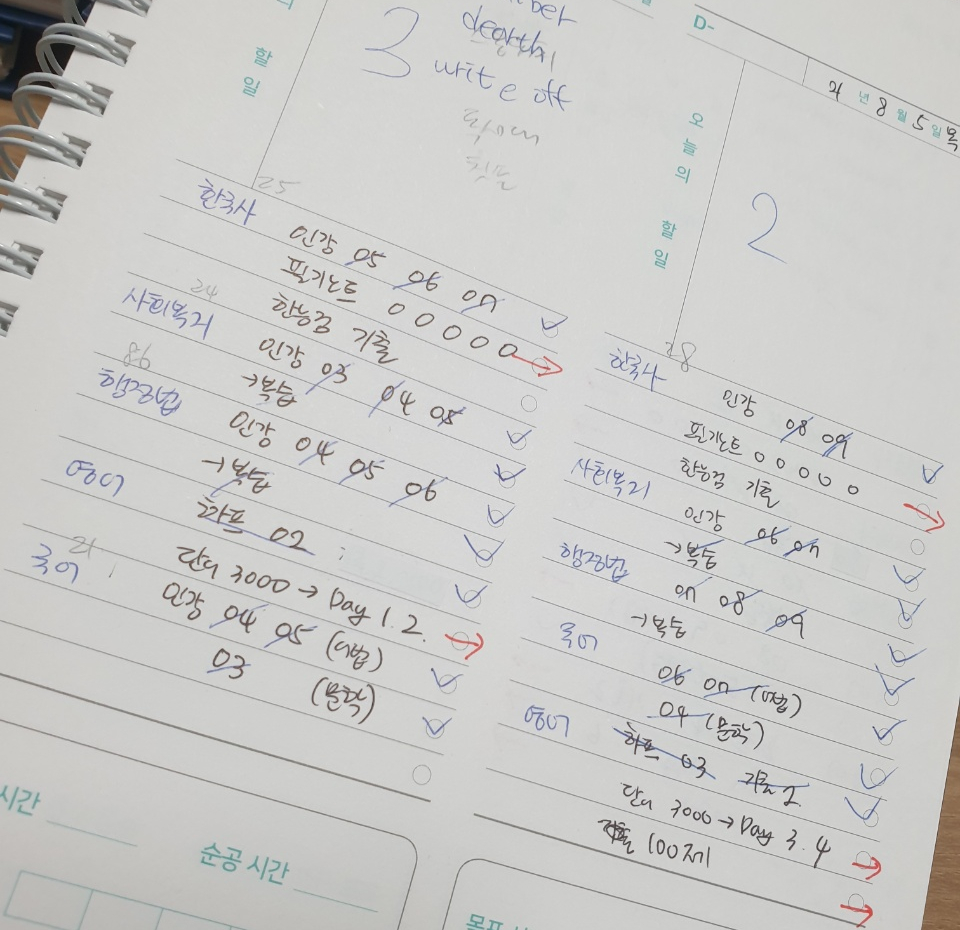 할 일
3
write off
25
한국사
인강 05 06 07
필기노트 0 0 0 0 0
한능검 기출
24
사회복지
인강 03 04 05
→복습
86
행정법
인강 04 05 06
→복습
영어
하프 02
단어 3000 → Day 1. 2.
21
국어
인강 04 05 (어법)
03 (문학)
시간
순공 시간
D-
21 년 8 월 5 일 목
오늘의 할 일
2
28
한국사
인강 08 09
필기노트 0 0 0 0 0
한능검 기출
사회복지
인강 06 07
→복습
행정법
07 08 09
→복습
국어
06 07 (어법)
04 (문학)
영어
하프 03
단어 3000 → Day 3. 4
100제